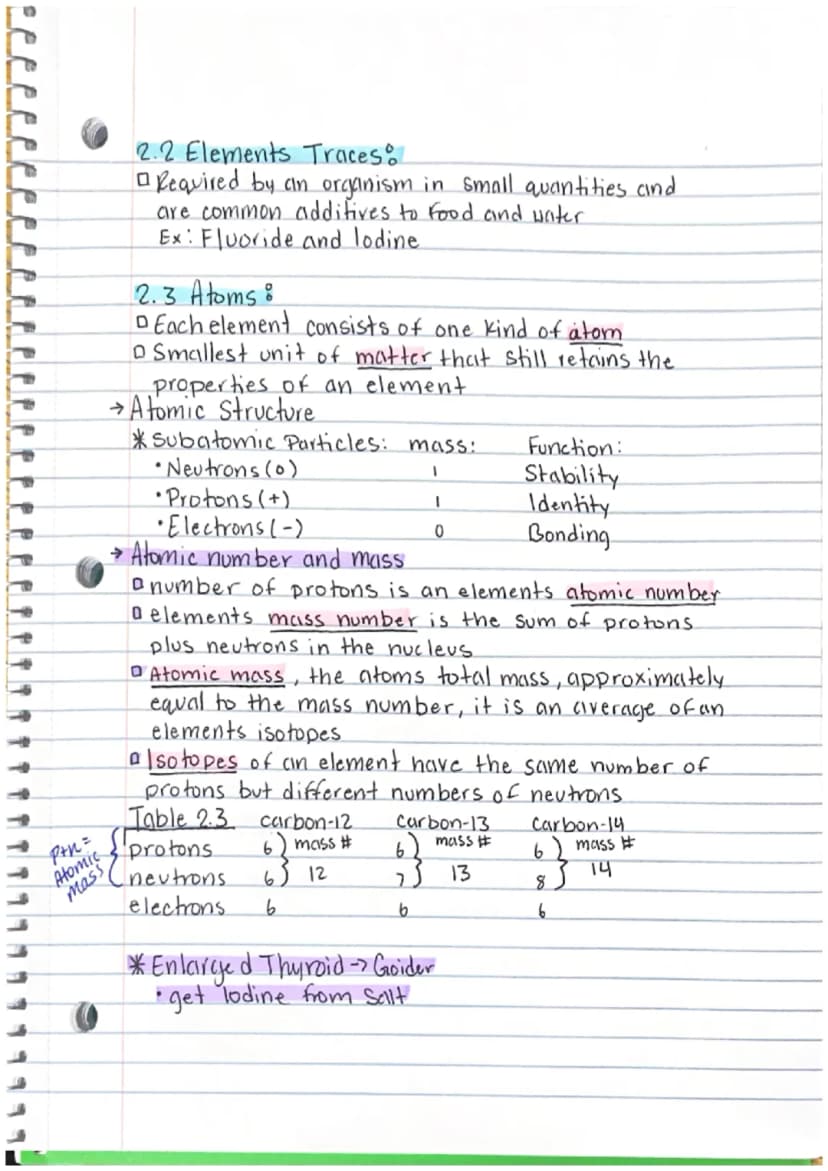 2.2 Elements Traces:
□ Required by an organism in small quantities and
are common additives to food and water
Ex: Fluoride and Iodine
2.3 Atoms:
□ Each element consists of one kind of atom
□ Smallest unit of matter that still retains the
properties of an element
→ Atomic Structure
* Subatomic Particles: mass: Function:
• Neutrons (0) 1 Stability
• Protons (+) 1 Identity
• Electrons (-) 0 Bonding
→ Atomic number and mass
□ number of protons is an elements atomic number
□ elements mass number is the sum of protons
plus neutrons in the nucleus
□ Atomic mass, the atoms total mass, approximately
equal to the mass number, it is an average of an
elements isotopes
□ Isotopes of an element have the same number of
protons but different numbers of neutrons
Table 2.3 carbon-12 carbon-13 carbon-14
P+n =
Atomic
mass
protons 6 mass # 6 mass # 6 mass #
neutrons 6 12 7 13 8 14
electrons 6 6 6
* Enlarged Thyroid → Goider
• get Iodine from Salt